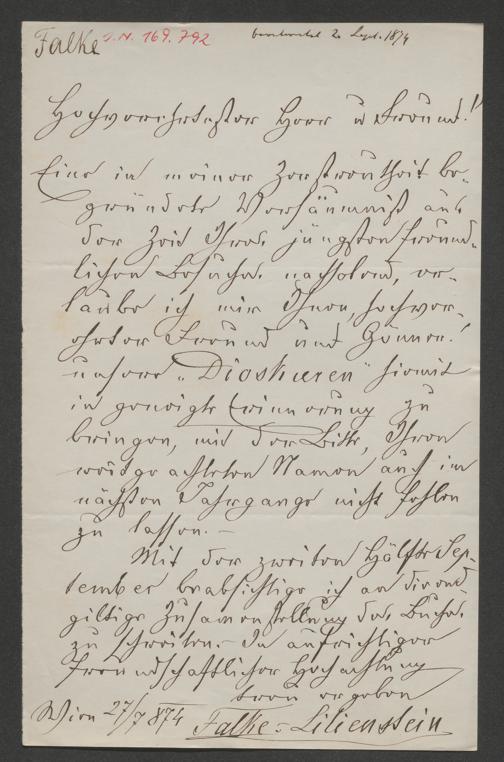 Falke
I.N. 169.792
beantwortet 2. Sept. 1874
Hochverehrtester Herr u Freund!
Eine in meiner Zerstreutheit be-
gründete Versäumniß aus
der Zeit Ihres jüngsten freund-
lichen Besuches nachholend, er-
laube ich mir Ihnen, hochver-
ehrter Freund und Gönner!
unsere „Dioskuren" hiemit
in geneigte Erinnerung zu
bringen, mit der Bitte, Ihren
werthgeachteten Namen auch im
nächsten Jahrgange nicht fehlen
zu lassen. –
Mit der zweiten Hälfte Sep-
tember beabsichtige ich an die end-
giltige Zusamenstellung des Buches
zu schreiten. – In aufrichtiger
freundschaftlicher Hochachtung
treu ergeben
Wien 27/7 874 Falke-Lilienstein